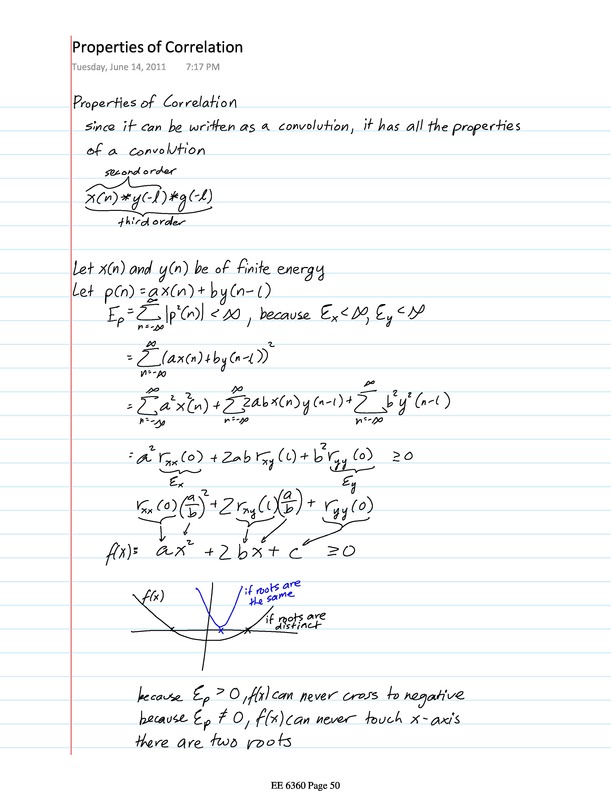 Properties of Correlation
Tuesday, June 14, 2011 7:17 PM
Properties of Correlation
since it can be written as a convolution, it has all the properties
of a convolution
second order
x(n)*y(-l)*g(-l)
third order
Let x(n) and y(n) be of finite energy
Let p(n) = ax(n) + by(n-l)
Ep = ∑_{n=-∞}^{∞} |p²(n)| < ∞, because Ex < ∞, Ey < ∞
= ∑_{n=-∞}^{∞} (ax(n)+by(n-l))²
= ∑_{n=-∞}^{∞} a²x²(n) + ∑_{n=-∞}^{∞} 2abx(n)y(n-l) + ∑_{n=-∞}^{∞} b²y²(n-l)
= a² rxx(0) + 2ab rxy(l) + b² ryy(0) ≥ 0
Ex Ey
rxx(0)(a/b)² + 2rxy(l)(a/b) + ryy(0)
f(x) = ax² + 2bx + c ≥ 0
f(x)
if roots are
the same
if roots are
distinct
because Ep > 0, f(x) can never cross to negative
because Ep ≠ 0, f(x) can never touch x-axis
there are two roots
EE 6360 Page 50